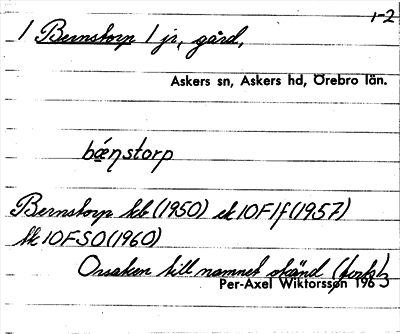 1-2
1 Bernstorp 1 jr, gård,
Askers sn, Askers hd, Örebro län.
bǽŋstorp
Bernstorp kb (1950) ek 10F1f (1957)
tk 10FSO (1960)
Orsaken till namnet okänd
Per-Axel Wiktorsson 1963